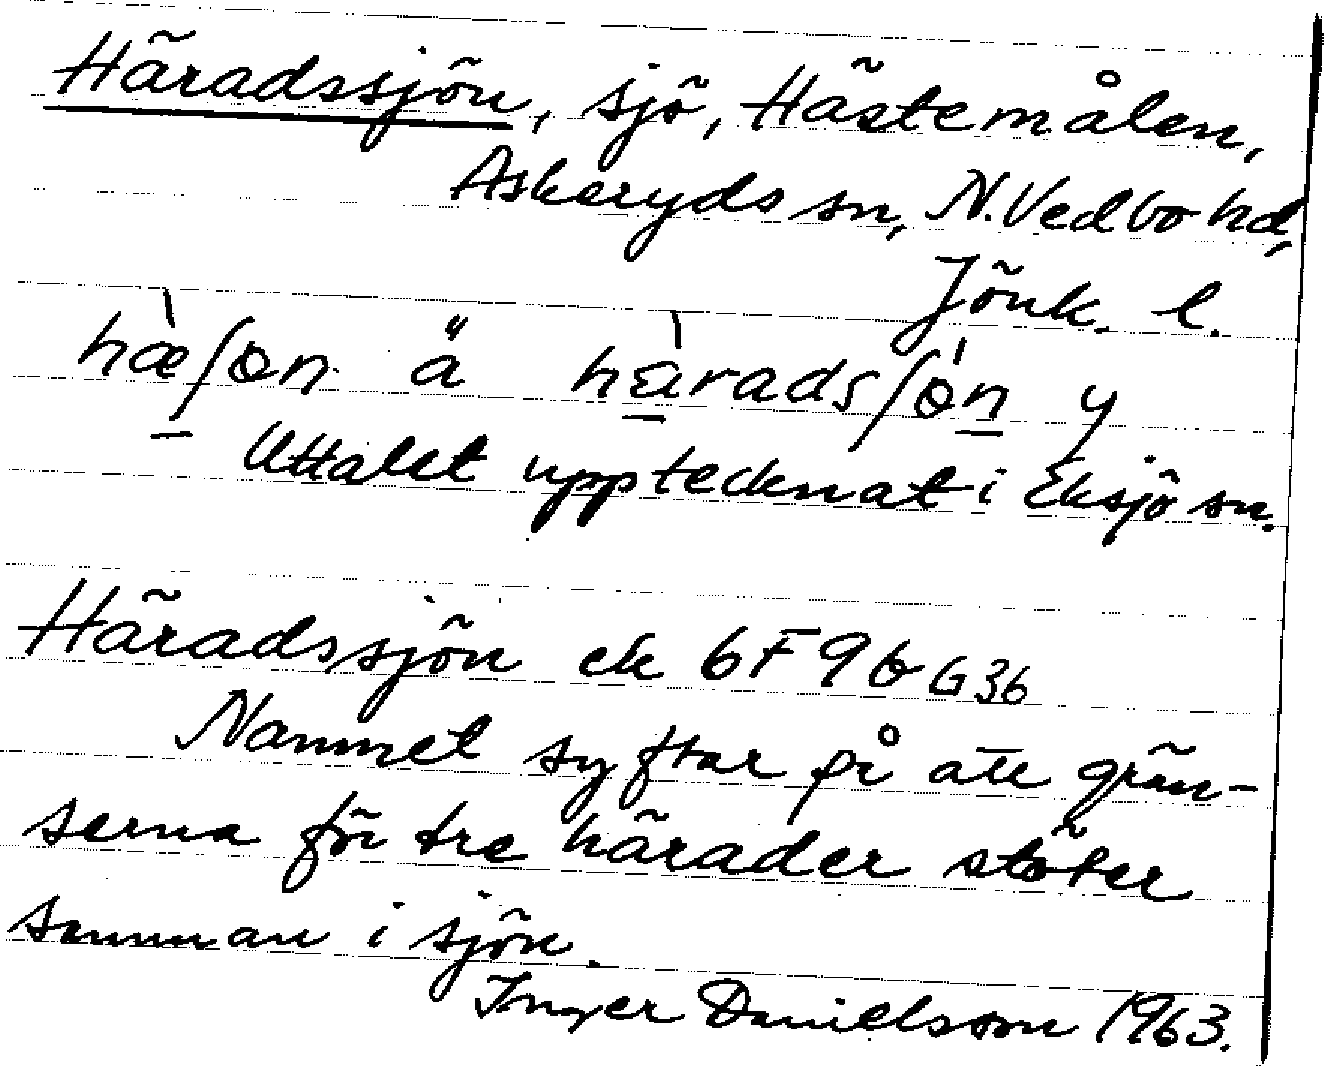 Häradssjön, sjö, Hästemålen,
Askeryds sn, N. Vedbo hd,
Jönk. l.
hæ̀ʃɵn ä hàradsʃɵ́n y
Uttalet upptecknat i Eksjö sn.
Häradssjön ek 6F9b G36
Namnet syftar på att grän-
serna för tre härader stöter
samman i sjön.
Inger Danielsson 1963.